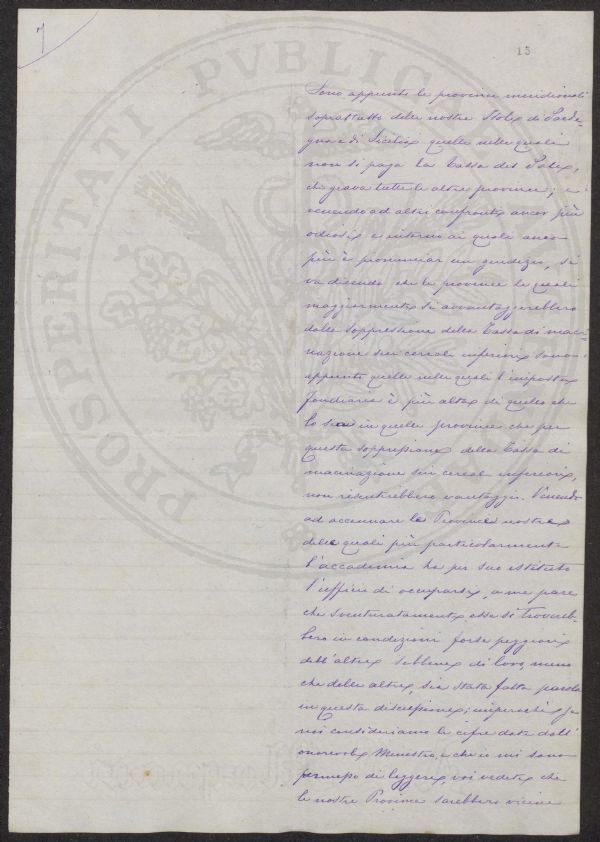 7
15
PROSPERITATI PUBLICAE
Sono appunto le provincie meridionali
soprattutto delle nostre Isole di Sarde-
gna e di Sicilia quelle nelle quali
non si paga la tassa del Sale,
che grava tutte le altre provincie; e
venendo ad altri confronti ancor più
odiosi e intorno ai quali ancor
più è pronunciar un giudizio, si
va dicendo che le provincie le quali
maggiormente si avvantaggerebbero
dalla soppressione della tassa di maci-
nazione sui cereali inferiori sono
appunto quelle nelle quali l'imposta
fondiaria è più alta di quello che
lo sia in quelle provincie che per
questa soppressione della tassa di
macinazione sui cereali inferiori,
non risentirebbero vantaggio. Venendo
ad accennare le Provincie nostre
delle quali più particolarmente
l'accademia ha per suo istituto
l'ufficio di occuparsi, a me pare
che sventuratamente esse si trovereb-
bero in condizioni forse peggiori
dell'altre sebbene di loro, meno
che delle altre, sia stata fatta parola
in questa discussione; imperochè se
noi consideriamo le cifre date dall'
onorevole Ministro, e che io mi sono
permesso di leggere, voi vedete che
le nostre Provincie sarebbero vicine